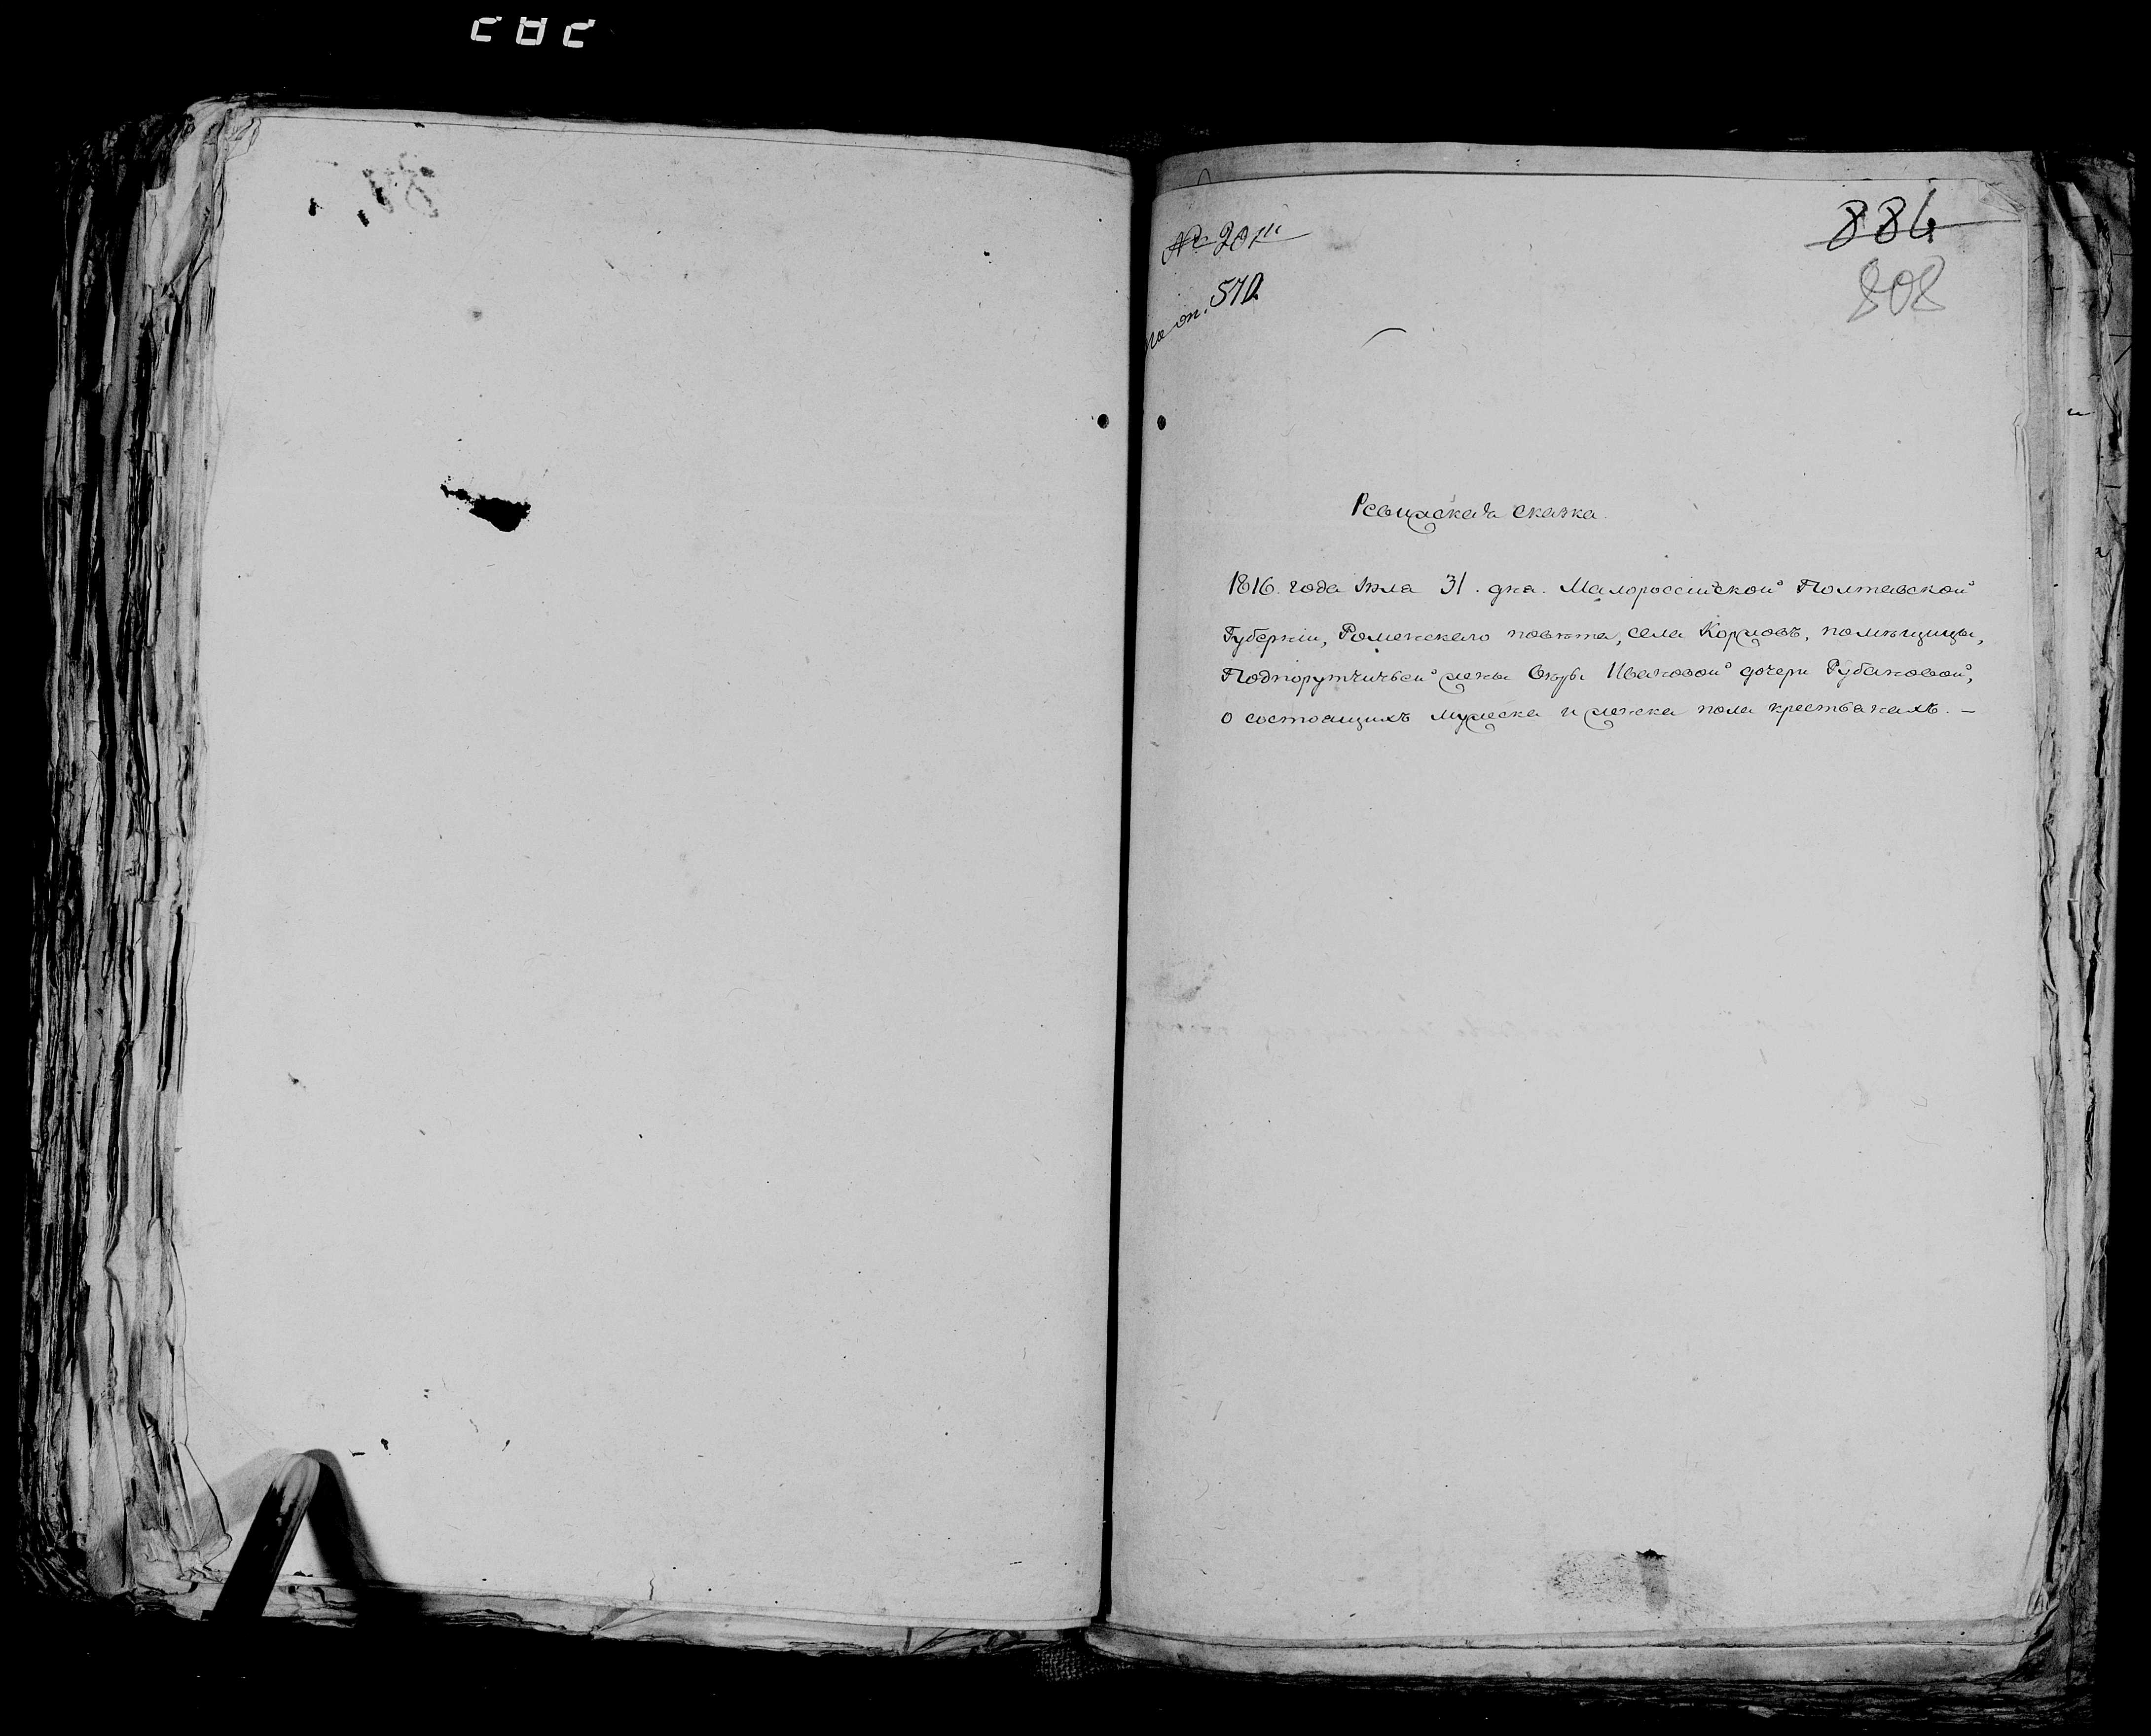 № 20
по оп. 510
884
808
Ревижская сказка.
1816. года Июля 31. дня. Малороссійской Полтавской
Губерніи, Роменскаго повѣта, села Коржовъ, помѣщицы,
Подпорутчичьей жены Ивановой дочери Рубановой,
о состоящихъ мужеска и женска пола крестьянахъ. —